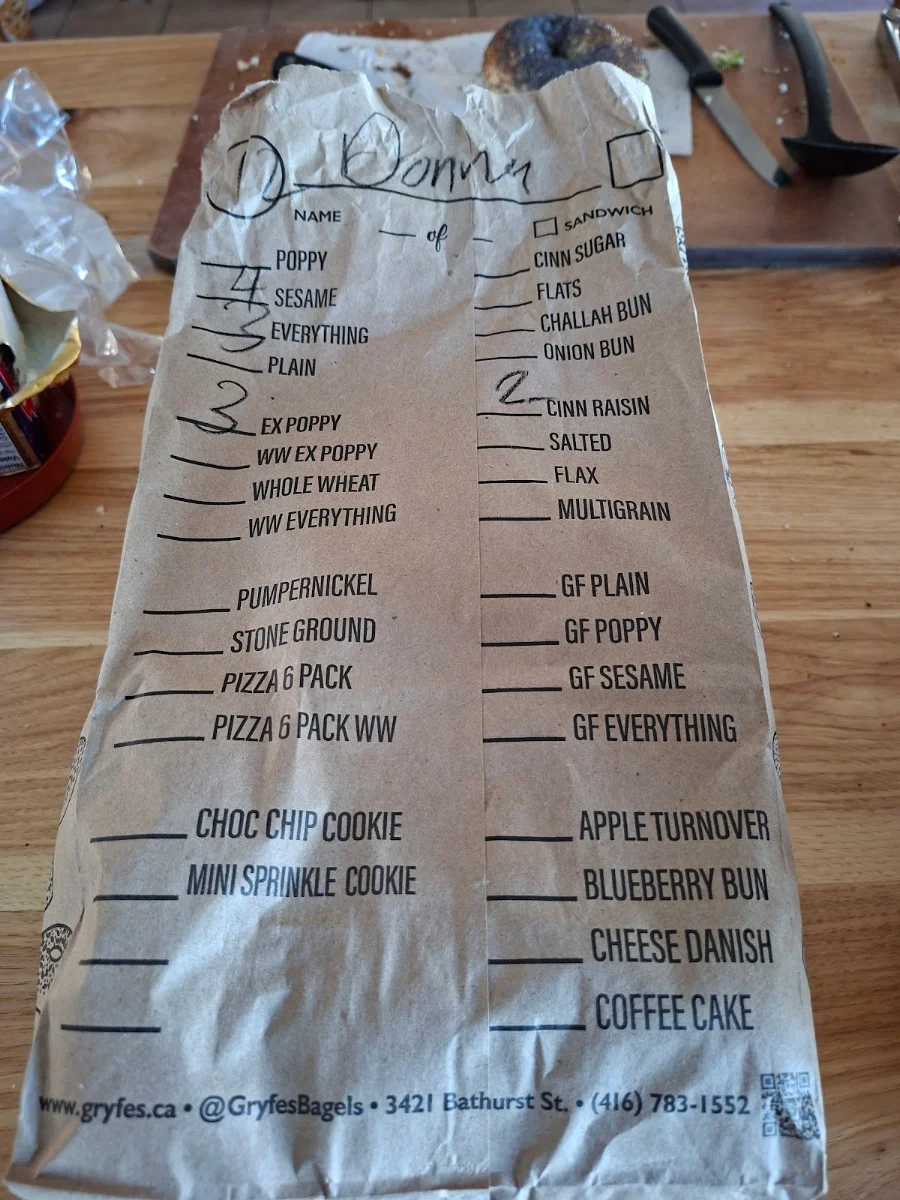 12 Donna
NAME
of
SANDWICH
POPPY
4 SESAME
3 EVERYTHING
PLAIN
3 EX POPPY
WW EX POPPY
WHOLE WHEAT
WW EVERYTHING
PUMPERNICKEL
STONE GROUND
PIZZA 6 PACK
PIZZA 6 PACK WW
CHOC CHIP COOKIE
MINI SPRINKLE COOKIE
CINN SUGAR
FLATS
CHALLAH BUN
ONION BUN
2 CINN RAISIN
SALTED
FLAX
MULTIGRAIN
GF PLAIN
GF POPPY
GF SESAME
GF EVERYTHING
APPLE TURNOVER
BLUEBERRY BUN
CHEESE DANISH
COFFEE CAKE
www.gryfes.ca • @GryfesBagels • 3421 Bathurst St. • (416) 783-1552